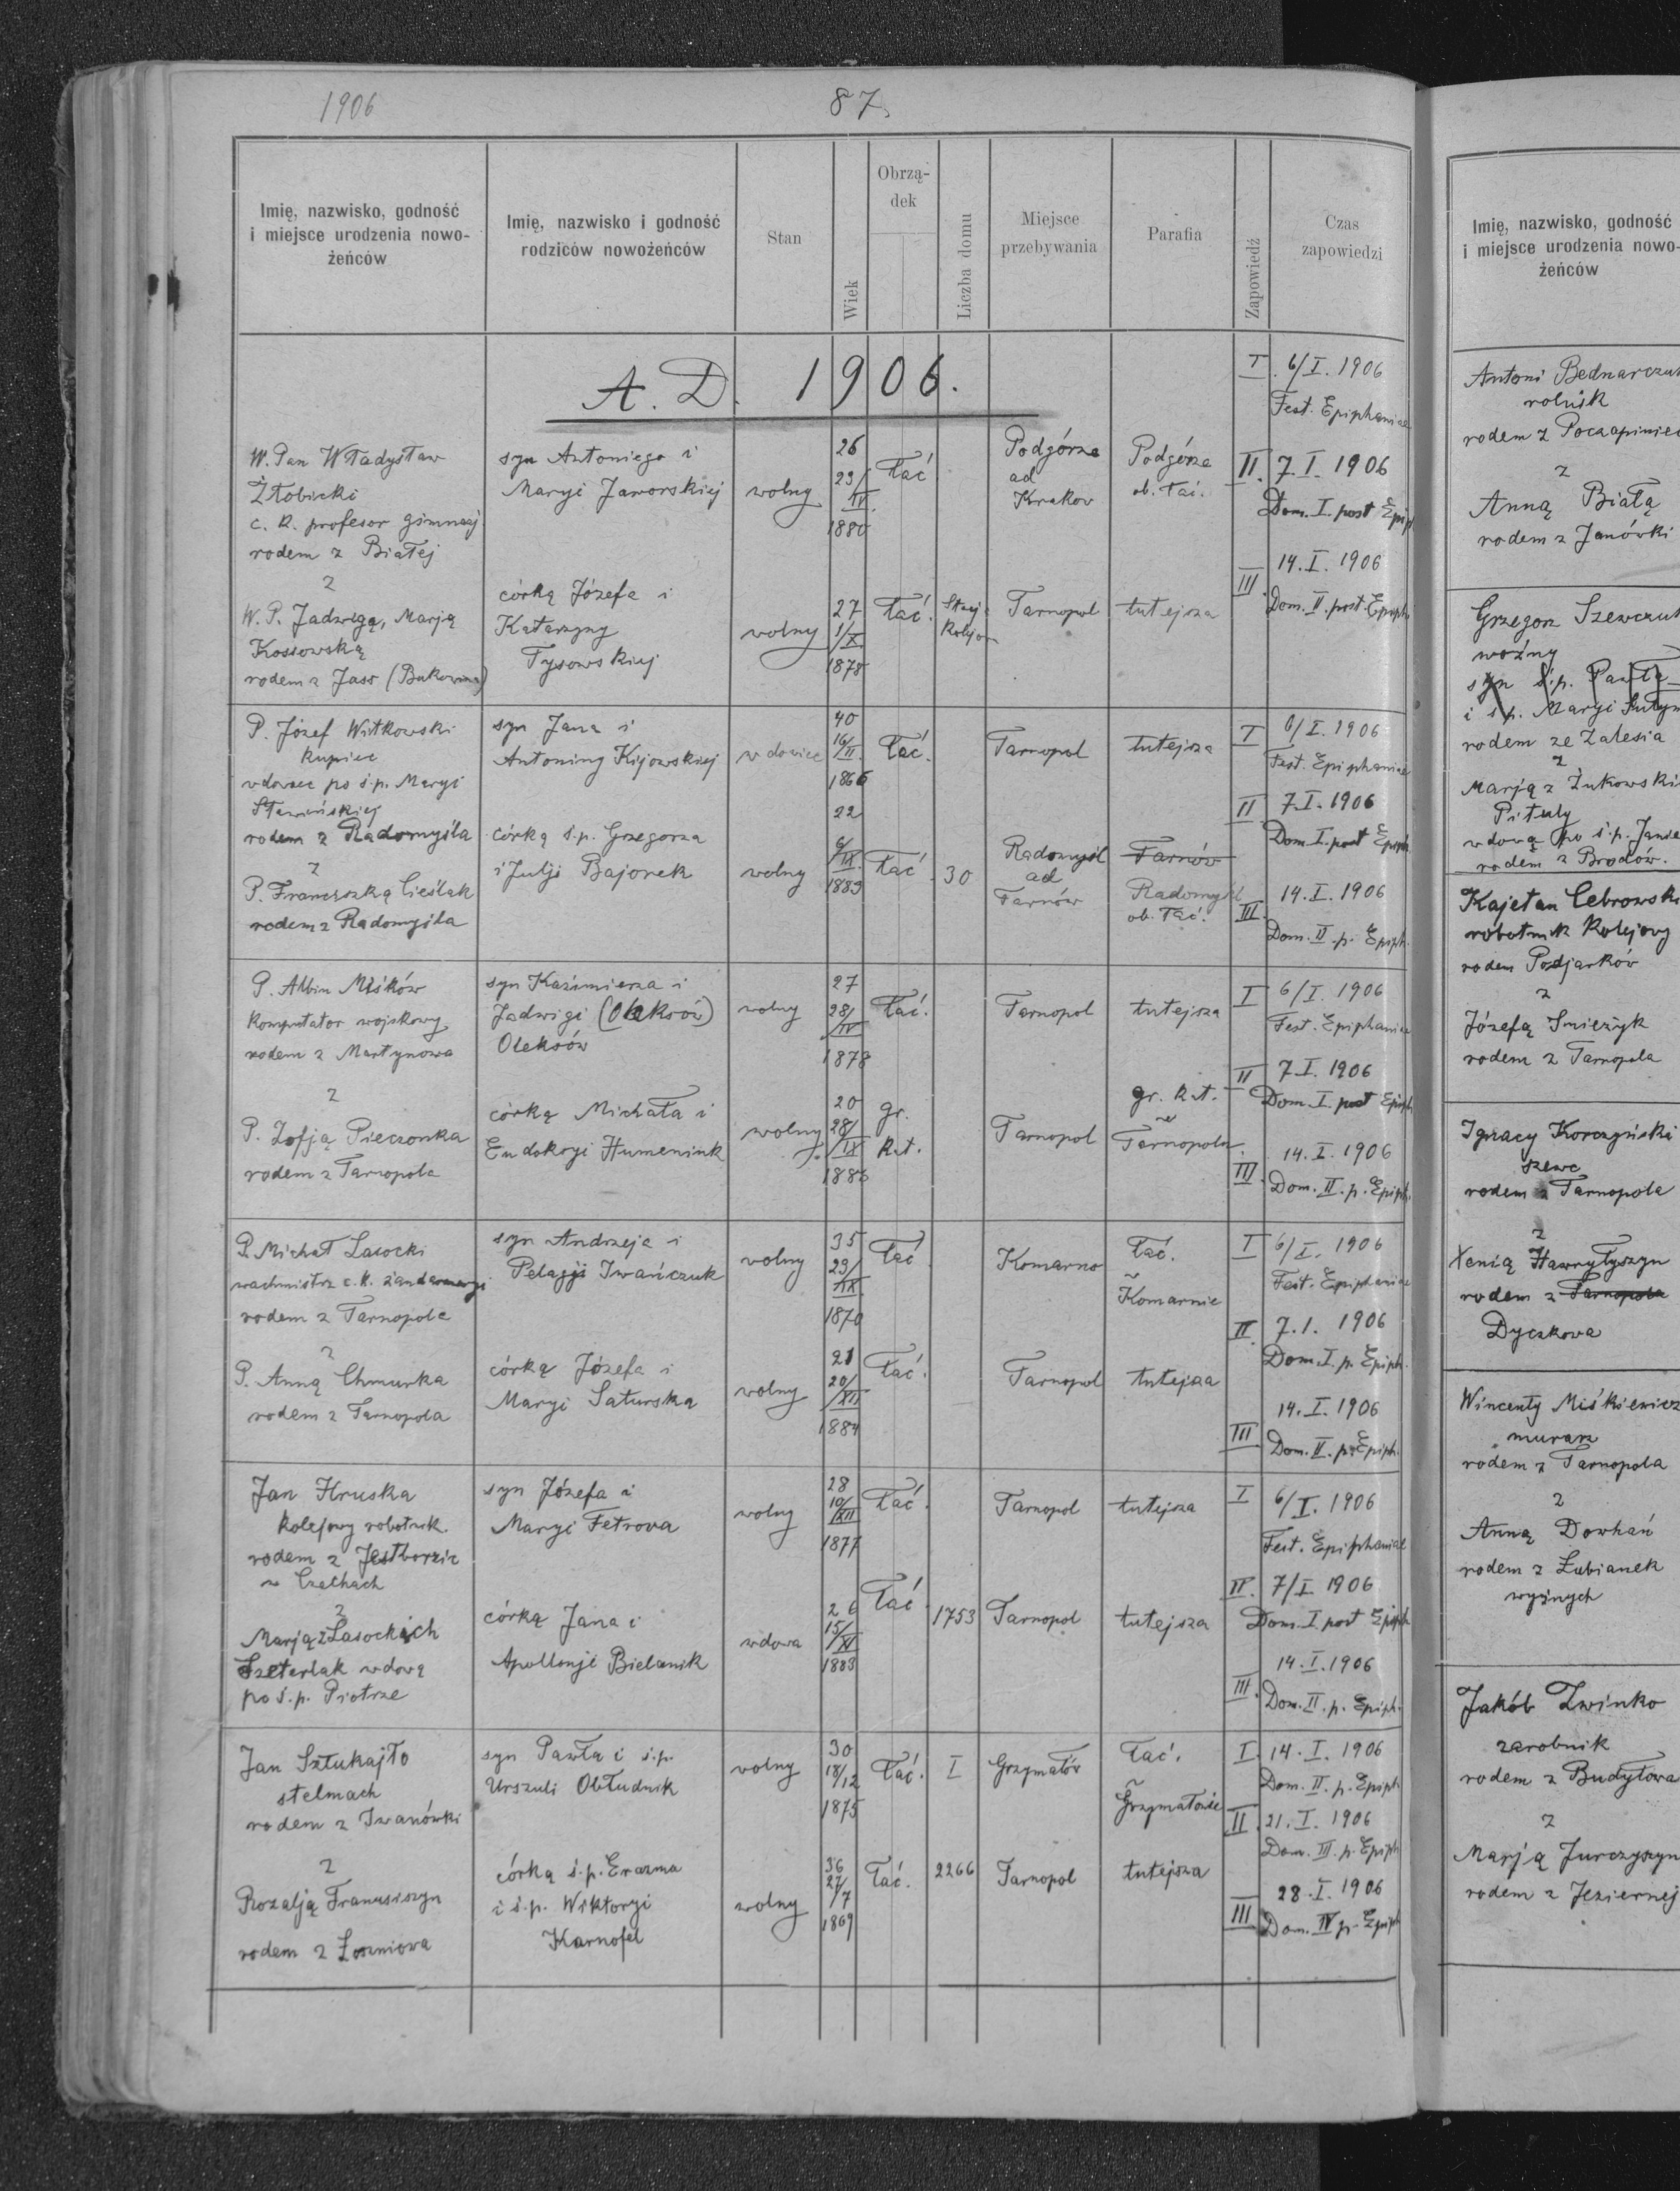 1906
87.
Imię, nazwisko, godność
i miejsce urodzenia nowo-
żeńców
Imię, nazwisko i godność
rodziców nowożeńców
Stan
Wiek
Obrzą-
dek
Liczba domu
Miejsce
przebywania
Parafia
Zapowiedź
Czas
zapowiedzi
A. D. 1906.
W. Pan Władysław
Żłobicki
c. k. profesor gimnazj
rodem z Białej
syn Antoniego i
Maryi Jaworskiej
wolny
26
23/
IV.
1880
Łać
Podgórze
ad
Krakov
Podgórze
ob. łać.
I. 6/I. 1906
Fest. Epiphaniae
II. 7.I. 1906
Dom. I. post Epip
III. 14. I. 1906
Dom. II. post. Epiph.
z
W. P. Jadwigą, Marją
Kossowską
rodem z Jass (Bukowina)
córką Józefa i
Katarzyny
Tysowskiej
wolny
27
1/X.
1878
łać.
Stacja
Kolejow
Tarnopol
tutejsza
P. Józef Witkowski
kupiec
wdowiec po ś.p. Maryi
rodem z Radomyśla
syn Jana i
Antoniny Kijowskiej
wdowiec
40
16/
II.
1866
Łać.
Tarnopol
tutejsza
I 6/I. 1906
Fest. Epiphaniae
II 7.I. 1906
Dom. I. post Epiph
III. 14. I. 1906
Dom. II. p. Epiph.
z
P. Franciszką Cieślak
rodem z Radomyśla
córką ś.p. Grzegorza
i Julji Bajorek
wolny
22
6/
IX
1883
Łać
30
Radomyśl
ad
Tarnów
Tarnów
Radomyśl
ob. łać.
P. Albin Miśków
komputator wojskowy
rodem z Martynowa
syn Kazimierza i
Jadwigi (Oleksów)
Oleksów
wolny
27
28/
IV
1878
Łać.
Tarnopol
tutejsza
I 6/I. 1906
Fest. Epiphaniae
II 7.I. 1906
Dom. I. post Epiph.
III. 14. I. 1906
Dom. II. p. Epiph.
z
P. Zofją Pieczonka
rodem z Tarnopola
córką Michała i
Eudokyi Humeniuk
wolny
20
28/
IX
gr.
k.t.
Tarnopol
gr. k.t.
w
Tarnopolu
P. Michał Lasocki
wachmistrz c. k. żandarmeryi
rodem z Tarnopola
syn Andrzeja i
Pelagji Iwańczuk
wolny
35
23/
IX
1870
Łać
Komarno
łać.
w
Komarnie
I 6/I. 1906
Fest. Epiphaniae
II. 7.1. 1906
Dom. I. p. Epiph.
III 14. I. 1906
Dom. II. p. Epiph.
z
P. Anną Chmurka
rodem z Tarnopola
córką Józefa i
Maryi Saturska
wolny
21
20/
XII
1884
Łać.
Tarnopol
tutejsza
Jan Hruska
kolejowy robotnik.
rodem z Jestborzic
w Czechach
syn Józefa i
Maryi Fetrova
wolny
28
10/
XII
1877
Łać.
Tarnopol
tutejsza
I 6/I. 1906
Fest. Epiphaniae
II. 7/I. 1906
Dom. I post Epiph
III. 14. I. 1906
Dom. II. p. Epiph.
z
Marją z Lasockich
Szeterlak wdową
po ś.p. Piotrze
córką Jana i
Apollonji Bielanik
wdowa
26
15/
XI
1883
Łać
1753
Tarnopol
tutejsza
Jan Sztukajło
stelmach
rodem z Iwanówki
syn Pawła i ś.p.
Urszuli Obłudnik
wolny
30
18/
12
1875
Łać.
I
Grzymałów
łać.
w
Grzymałowie
I. 14. I. 1906
Dom. II. p. Epiph
II. 21. I. 1906
Dom. III. p. Epiph
III 28. I. 1906
Dom. IV p. Epiph
z
Rozalją Franusiszyn
rodem z Łoszniowa
córką ś.p. Erazma
i ś.p. Wiktoryi
Karnofel
wolny
36
27/
7
1869
Łać.
2266
Tarnopol
tutejsza
Imię, nazwisko, godność
i miejsce urodzenia nowo-
żeńców
Antoni Bednarczuk
rolnik
rodem z
z
Anną Białą
rodem z Janówki
Grzegorz Szewczuk
woźny
syn ś.p. Pawła
i ś.p. Maryi
rodem ze Zalesia
z
Marją z Żukowski
Pituły
wdową po ś.p. Janie
rodem z Brodów.
Kajetan Cebrowski
robotnik kolejowy
rodem Podjarków
z
Józefą Śnieżyk
rodem z Tarnopola
Ignacy Korczyński
szewc
rodem z Tarnopola
z
Xenią Hawryłyszyn
rodem z Tarnopola
Dyczkowa
Wincenty Miśkiewicz
murarz
rodem z Tarnopola
z
Anną Dowhań
rodem z Łubianek
wyżnych
Jakób Zwinko
zarobnik
rodem z Budyłowa
z
Marją Jurczyszyn
rodem z Jeziernej